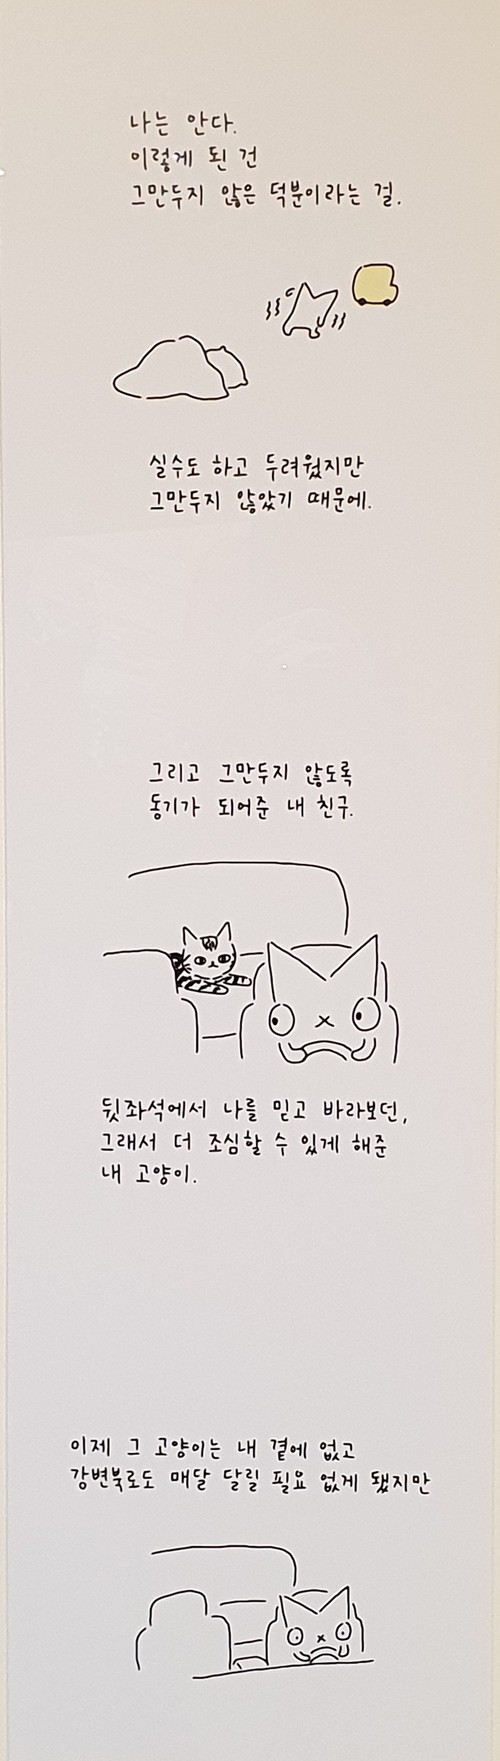 나는 안다.
이렇게 된 건
그만두지 않은 덕분이라는 걸.
실수도 하고 두려웠지만
그만두지 않았기 때문에.
그리고 그만두지 않도록
동기가 되어준 내 친구.
뒷좌석에서 나를 믿고 바라보던,
그래서 더 조심할 수 있게 해준
내 고양이.
이제 그 고양이는 내 곁에 없고
강변북로도 매달 달릴 필요 없게 됐지만